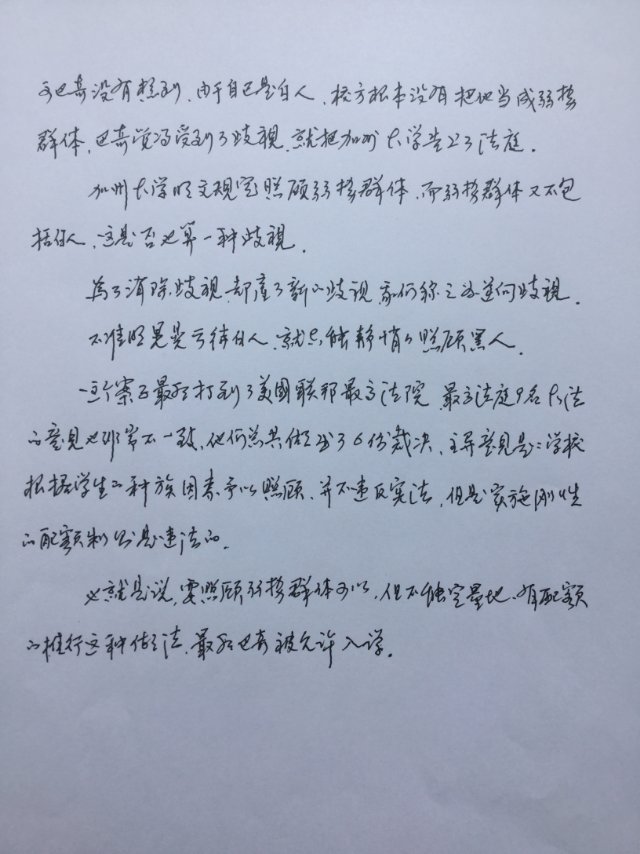 可巴奇没有想到，由于自己是白人，校方根本没有把他当成弱势
群体，巴奇觉得受到了歧視，就把加州大学告上了法庭。
加州大学明文规定照顾弱势群体，而弱势群体又不包
括白人，这是否也算一种歧視。
為了消除歧視，却産了新的歧視，我们称之为逆向歧視。
不准明晃晃亏待白人，就只能静悄悄照顾黑人。
这个案子最后打到了美國联邦最高法院，最高法庭9名大法
的意見也非常不一致，他们总共做出了6份裁决，主导意見是：学校
根据学生的种族因素予以照顾，并不違反宪法，但是実施刚性
的配额制则是違法的。
也就是说，要照顾弱势群体可以，但不能定量地、有配额
的推行这种做法，最后巴奇被允许入学。